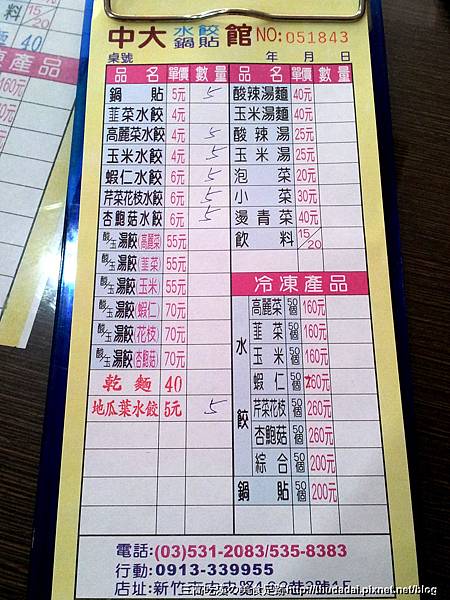 中大 水餃鍋貼 館 NO:051843
桌號 年 月 日
品名 單價 數量 品名 單價 數量
鍋貼 5元 5 酸辣湯麵 40元
韮菜水餃 4元 玉米湯麵 40元
高麗菜水餃 4元 5 酸辣湯 25元
玉米水餃 4元 5 玉米湯 25元
蝦仁水餃 6元 5 泡菜 20元
芹菜花枝水餃 6元 5 小菜 30元
杏鮑菇水餃 6元 5 燙青菜 40元
酸/玉湯餃(高麗菜) 55元 飲料 15/20
酸/玉湯餃(韮菜) 55元
酸/玉湯餃(玉米) 55元 冷凍產品
酸/玉湯餃(蝦仁) 70元 水餃 高麗菜 50個 160元
酸/玉湯餃(花枝) 70元 韮菜 50個 160元
酸/玉湯餃(杏鮑菇) 70元 玉米 50個 160元
乾麵 40 蝦仁 50個 260元
地瓜葉水餃 5元 5 芹菜花枝 50個 260元
杏鮑菇 50個 260元
綜合 50個 200元
鍋貼 50個 200元
電話:(03)531-2083/535-8383
行動:0913-339955
店址:新竹市
http://thudadai.pixnet.net/blog
15/20
40
產品
160元